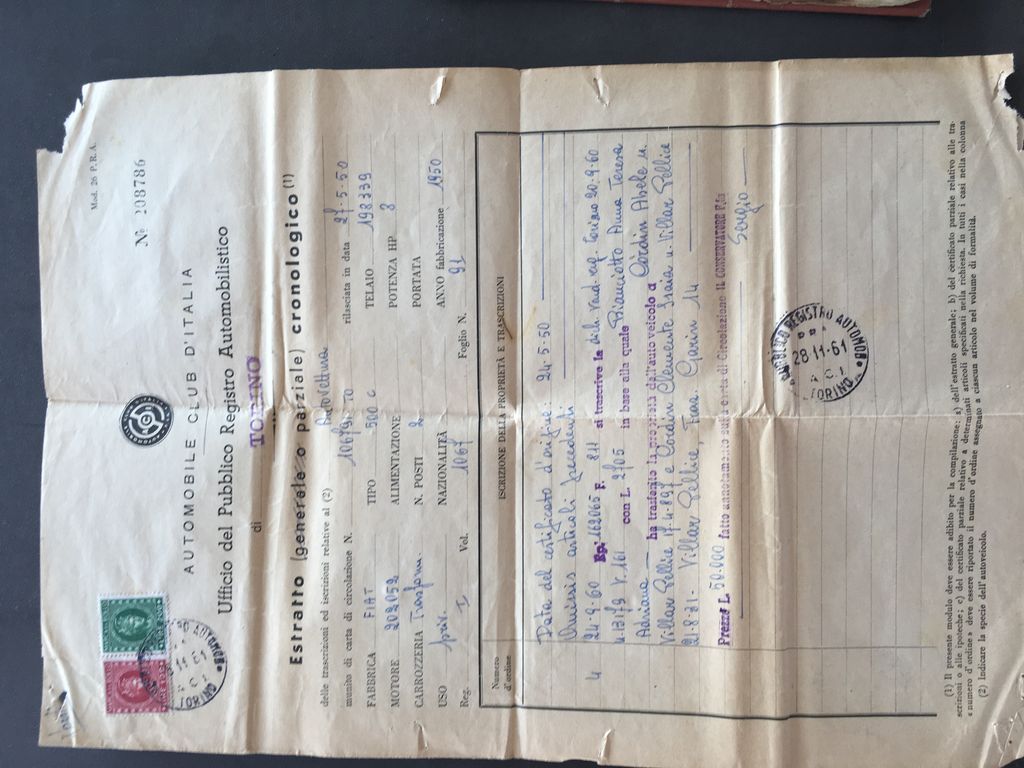 Mod. 26 P. R. A.
Nº 208786
AUTOMOBILE CLUB D'ITALIA
Ufficio del Pubblico Registro Automobilistico
di TORINO
Estratto (generale o parziale) cronologico (1)
delle trascrizioni ed iscrizioni relative al (2) Autovettura
munito di carta di circolazione N. 106791 TO rilasciata in data 27-5-50
FABBRICA FIAT TIPO 500 C TELAIO 198339
MOTORE 202059 ALIMENTAZIONE POTENZA HP 8
CARROZZERIA Trasform. N. POSTI 2 PORTATA
USO priv. NAZIONALITÀ ANNO fabbricazione 1950
Reg. I Vol. 1067 Foglio N. 91
Numero d'ordine
ISCRIZIONE DELLA PROPRIETÀ E TRASCRIZIONI
Data del certificato d'origine: 24-5-50
Omissis articoli precedenti
4 24-9-60 Rp. 162065 F. 811 si trascrive la dich. vend. reg. Torino 20-9-60
n. 13179 V. 161 con L. 2105 in base alla quale Bianciotto Anna Teresa
Adriana ha trasferito la proprietà dell'autoveicolo a Cordin Abele n.
Villar Pellice e Cordin Clemente Isaia n. Villar Pellice
Villar Pellice, Fraz. Garin 14
Prezzo L. 50.000 fatto annotamento sulla carta di Circolazione IL CONSERVATORE F.to
Sergio
PUBBLICO REGISTRO AUTOMOB.
28-11-61
A C I
TORINO
(1) Il presente modulo deve essere adibito per la compilazione: a) dell'estratto generale; b) del certificato parziale relativo alle tra-
scrizioni o alle ipoteche; c) del certificato parziale relativo a determinati articoli specificati nella richiesta. In tutti i casi nella colonna
« numero d'ordine » deve essere riportato il numero d'ordine assegnato a ciascun articolo nel volume di formalità.
(2) Indicare la specie dell'autoveicolo.